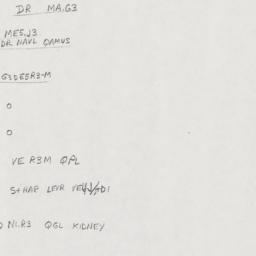 DR MA.G3
MES.J3
DR NAVL QAMUS
G3DEER3-M
O
O
VE R3M QPL
S+HAP LEVR
NI.R3 QGL KIDNEY